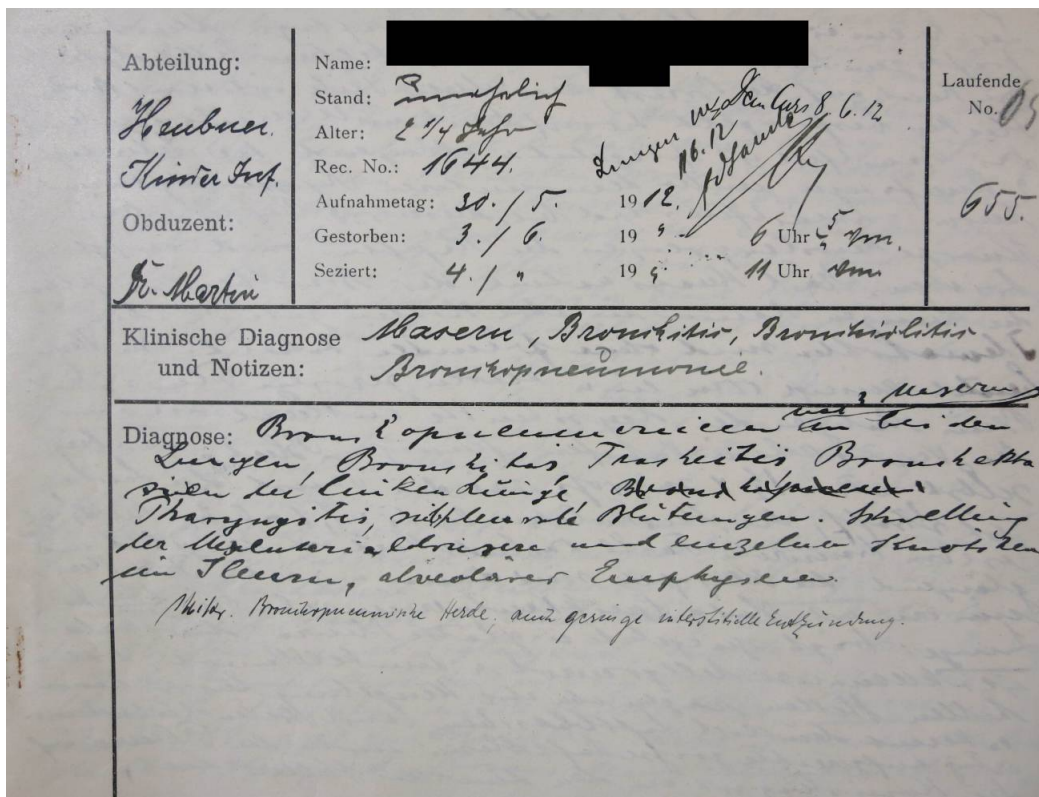 Abteilung:
Heubner.
Kinder Inf.
Obduzent:
Dr. Martin
Name:
Stand: unehelich
Alter: 2 1/4 Jahr
Rec. No.: 1644.
Aufnahmetag: 30./5. 1912.
Gestorben: 3./6. 19 " 6 Uhr 5 Vm.
Seziert: 4./ " 19 " 11 Uhr Vm
Lungen 8.6.12
Laufende
No.
655.
Klinische Diagnose Masern, Bronchitis, Bronchiolitis
und Notizen: Bronchopneumonie.
Masern
Diagnose: Bronchopneumonieen in beiden
Lungen, Bronchitis, Tracheitis, Bronchekta
sieen der linken Lunge
Pharyngitis, subpleurale Blutungen. Schwellung
der Mesenterialdrüsen und einzelner Knötchen
im Ileum, alveoläres Emphysem.
Mikr. Bronchopneumonische Herde, auch geringe interstitielle Entzündung.